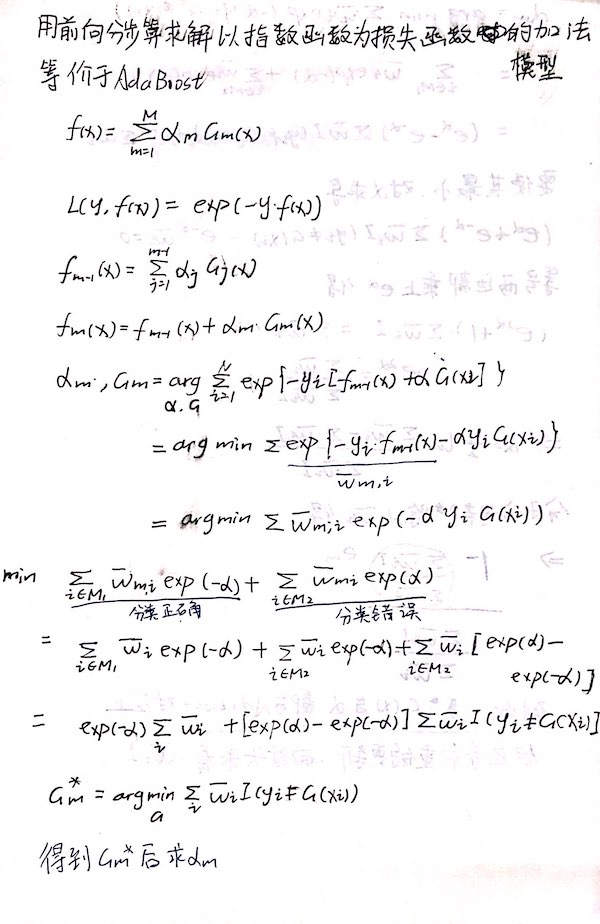 用前向分步算求解以指数函数为损失函数的加法
等价于AdaBoost 模型
f(x) = \sum_{m=1}^{M} α_m G_m(x)
L(y, f(x)) = exp(-y·f(x))
f_{m-1}(x) = \sum_{j=1}^{m-1} α_j G_j(x)
f_m(x) = f_{m-1}(x) + α_m·G_m(x)
α_m, G_m = arg_{α.G} \sum_{i=1}^{N} exp{-y_i[f_{m-1}(x) + α G(x_i)]}
= arg min Σ exp{-y_i f_{m-1}(x) - α y_i G(x_i)}
\bar{w}_{m,i}
= argmin Σ \bar{w}_{m,i} exp(-α y_i G(x_i))
min \sum_{i∈M_1} \bar{w}_{m,i} exp(-α) + \sum_{i∈M_2} \bar{w}_{mi} exp(α)
分类正确 分类错误
= \sum_{i∈M_1} \bar{w}_i exp(-α) + \sum_{i∈M_2} \bar{w}_i exp(-α) + \sum_{i∈M_2} \bar{w}_i [exp(α) -
exp(-α)]
= exp(-α) \sum_i \bar{w}_i + [exp(α) - exp(-α)] Σ \bar{w}_i I(y_i ≠ G(x_i)]
G_m^* = argmin_G \sum_i \bar{w}_i I(y_i ≠ G(x_i))
得到 G_m^* 后求 α_m